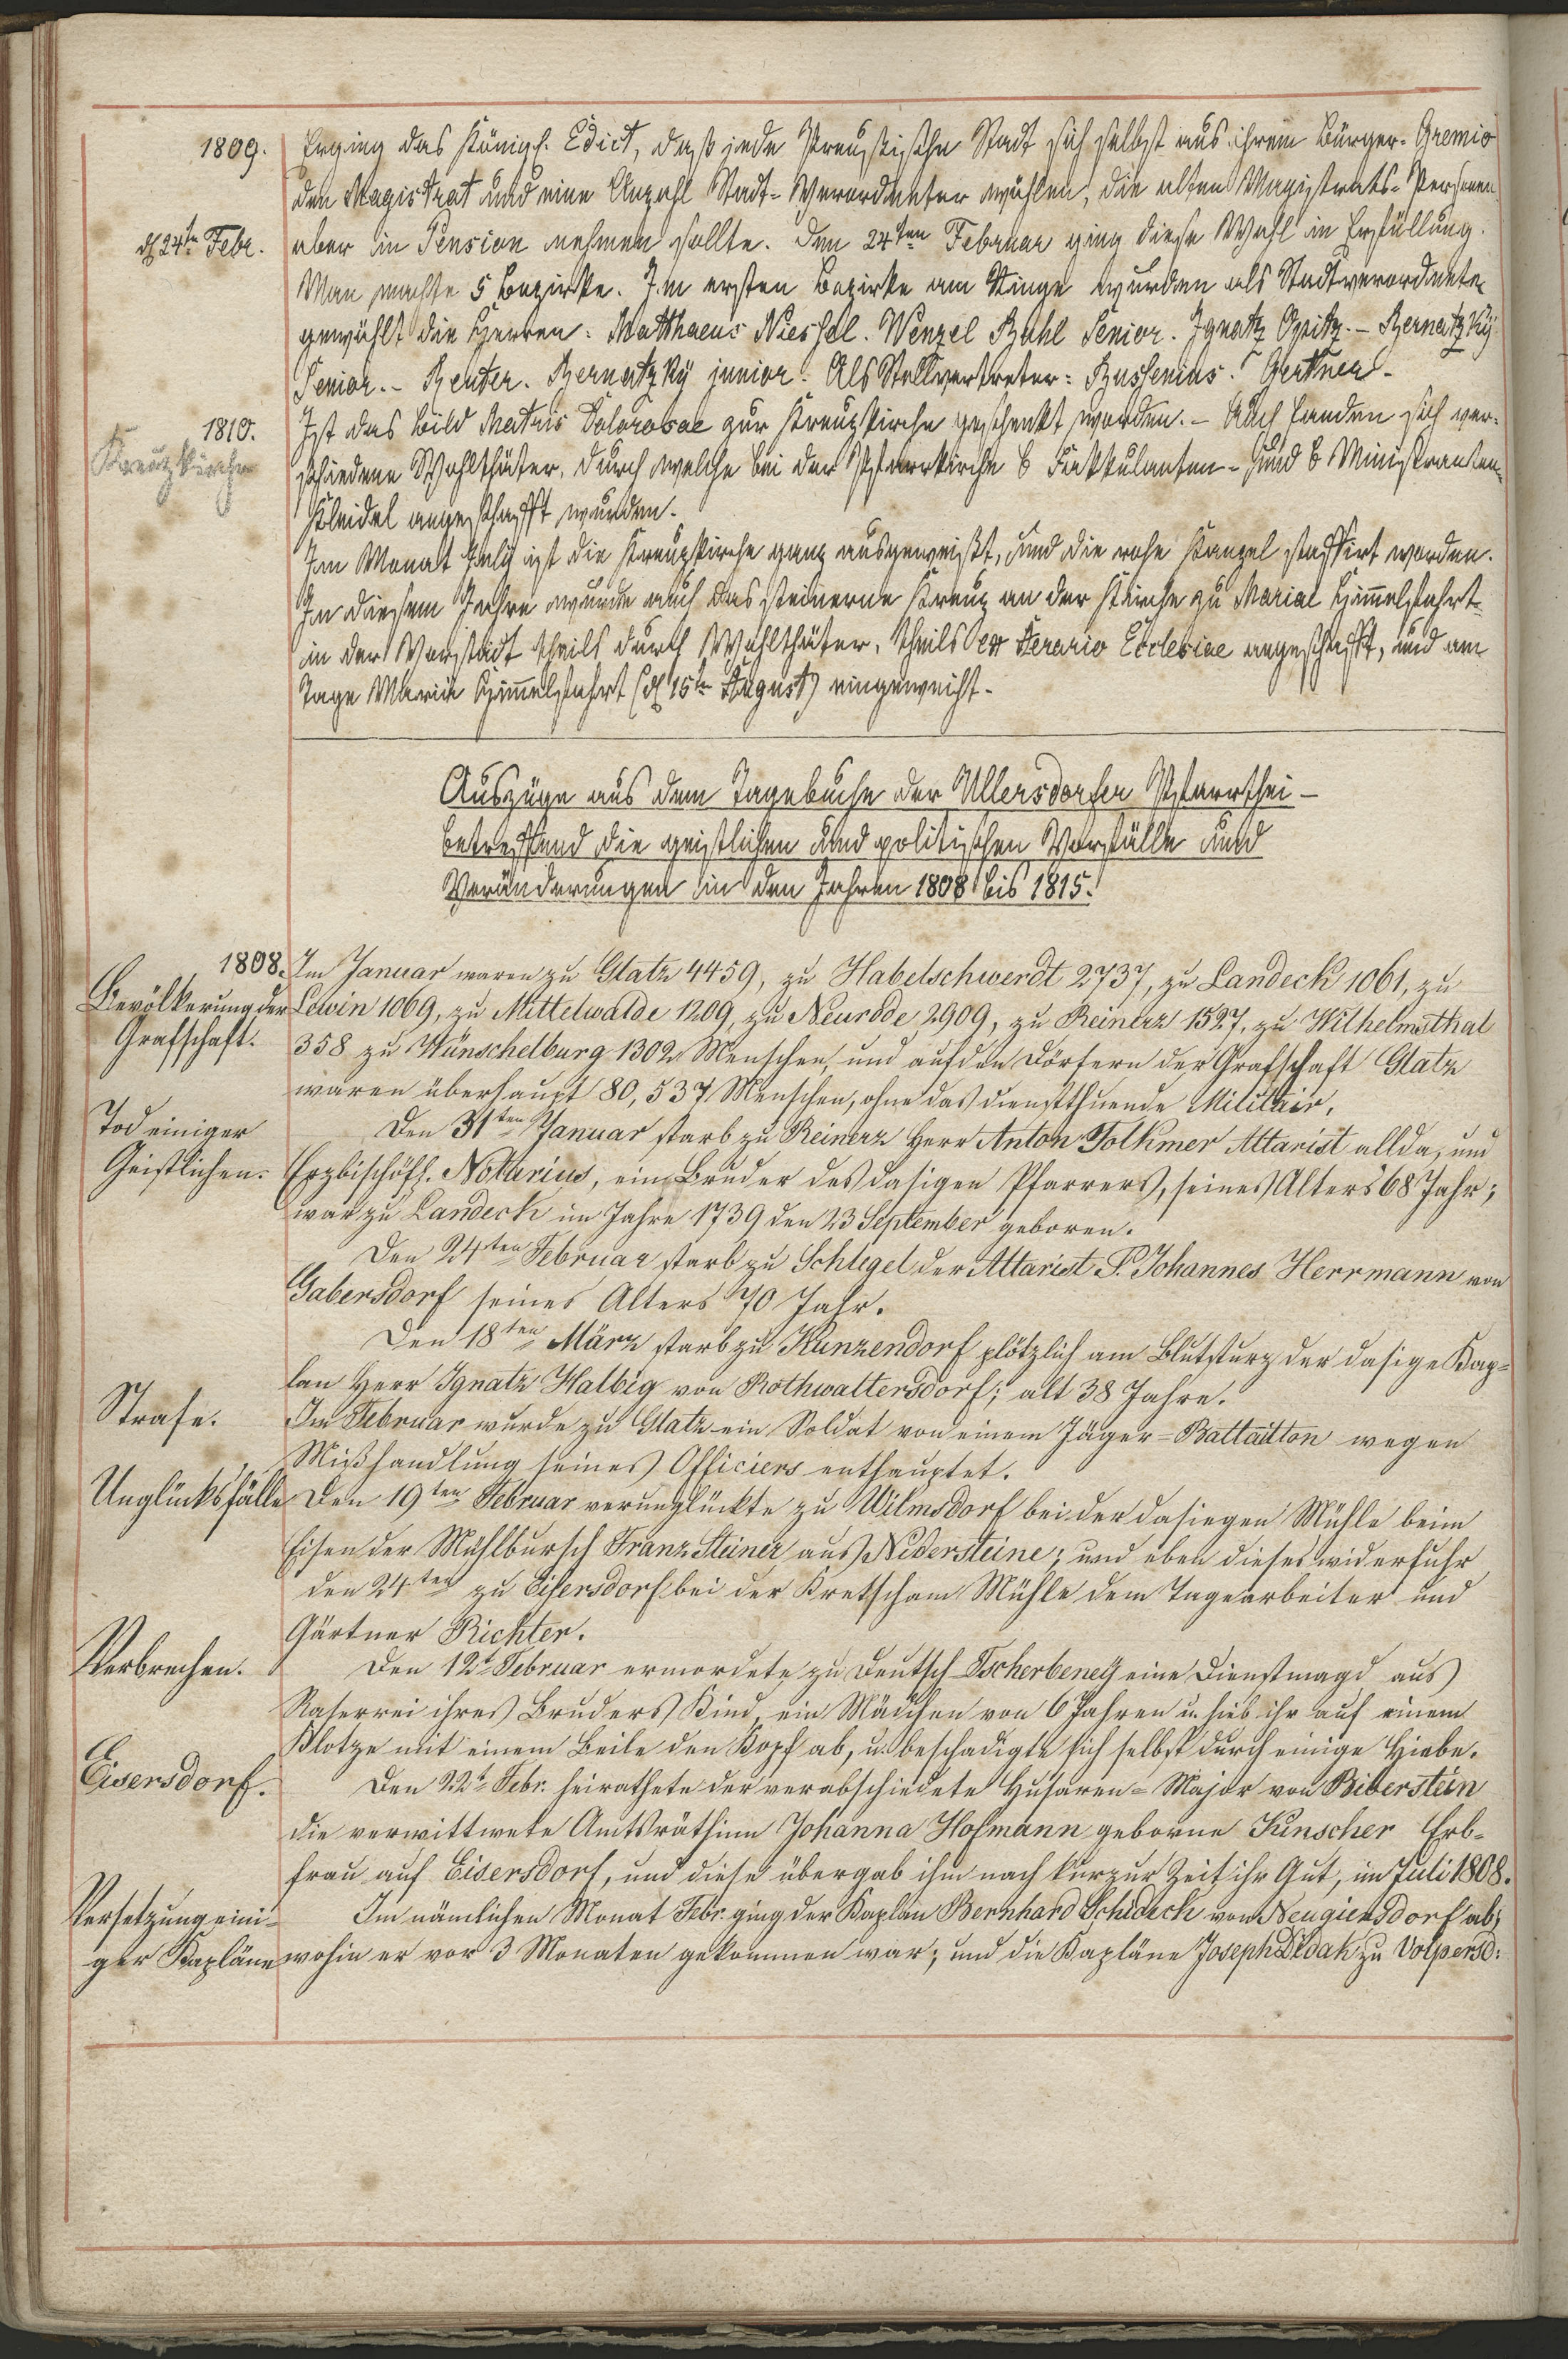 1809. Erging das Königl. Edict, daß jede Preußische Stadt sich selbst aus ihrem Bürger-Gremio
den Magistrat und eine Anzahl Stadt-Verordneter wählen, die alten Magistrats-Personen
d 24tn Febr. aber in Pension nehmen sollte. Den 24ten Februar ging diese Wahl in Erfüllung.
Man machte 5 Bezirke. Im ersten Bezirke am Ringe wurden als Stadtverordnete
gewählt die Herren: Matthaeus Niessel. Wenzel Buhl Senior. Ignatz Opitz. – Bernatzkÿ
Senior. – Reuter. Bernatzkÿ junior. Als Stellvertreter: Bussenius. Gertner. –
1810. Ist das Bild Matris Dolorosae zur Kreuzkirche geschenkt worden. – Auch fanden sich ver-
Kreuzkirche schiedene Wohlthäter, durch welche bei der Pfarrkirche 6 Fakkulanten- und 6 Ministranten-
Kleidel angeschafft wurden.
Im Monat July ist die Kreuzkirche ganz ausgeweißt, und die rohe Kanzel staffirt worden.
In diesem Jahre wurde auch das steinerne Kreuz an der Kirche zu Mariae Himmelfahrt
in der Vorstadt theils durch Wohlthäter, theils ex Aerario Ecclesiae angeschafft, und am
Tage Mariä Himmelfahrt (d 15tn August) eingeweiht. –
Auszüge aus dem Tagebuche der Ullersdorfer Pfarrthei –
betreffend die geistlichen und politischen Vorfälle und
Veränderungen in den Jahren 1808 bis 1815.
1808. Im Januar waren zu Glatz 4459, zu Habelschwerdt 2737, zu Landeck 1061, zu
Bevölkerung der Lewin 1069, zu Mittelwalde 1209, zu Neurode 2909, zu Reinerz 1527, zu Wilhelmsthal
Grafschaft. 358 zu Wünschelburg 1302 Menschen, und auf den Dörfern der Grafschaft Glatz
waren überhaupt 80,537 Menschen, ohne das dienstthuende Militair.
Tod einiger Den 31ten Januar starb zu Reinerz Herr Anton Volkmer Altarist allda, und
Geistlichen. Erzbischöfl. Notarius, ein Bruder des dasigen Pfarrers, seines Alters 68 Jahr;
war zu Landeck im Jahre 1739 den 23 September geboren.
Den 24ten Februar starb zu Schlegel der Altarist P. Johannes Herrmann von
Gabersdorf seines Alters 70 Jahr.
Den 18ten März starb zu Kunzendorf plötzlich am Blutsturz der dasige Kap-
lan Herr Ignatz Halbig von Rothwaltersdorf; alt 38 Jahre.
Strafe. Im Februar wurde zu Glatz ein Soldat von einem Jäger-Battaillon wegen
Mißhandlung seines Officiers enthauptet.
Unglücksfälle Den 19ten Februar verunglückte zu Wilmsdorf bei der dasiegen Mühle beim
Eisen der Mühlbursch Franz Steiner aus Nidersteine; und eben dieses widerfuhr
den 24ten zu Eisersdorf bei der Kretscham Mühle dem Tagearbeiter und
Gärtner Richter.
Verbrechen. Den 12t Februar ermordete zu Deutsch-Tscherbeneÿ eine Dienstmagd aus
Raserrei ihres Bruders Kind, ein Mädchen von 6 Jahren u. hieb ihr auf einem
Klotze mit einem Beile den Kopf ab, u. beschädigte sich selbst durch einige Hiebe.
Eisersdorf. Den 22t Febr. heirathete der verabschiedete Husaren-Major von Biberstein
die verwittwete Amtsräthinn Johanna Hofmann geborne Kinscher Erb-
frau auf Eisersdorf, und diese übergab ihm nach kurzer Zeit ihr Gut, im Juli 1808.
Versetzung eini- Im nämlichen Monat Febr. ging der Kaplan Bernhard von Neugiersdorf ab;
ger Kapläne wohin er vor 3 Monaten gekommen war; und die Kapläne Joseph zu Volpersd: